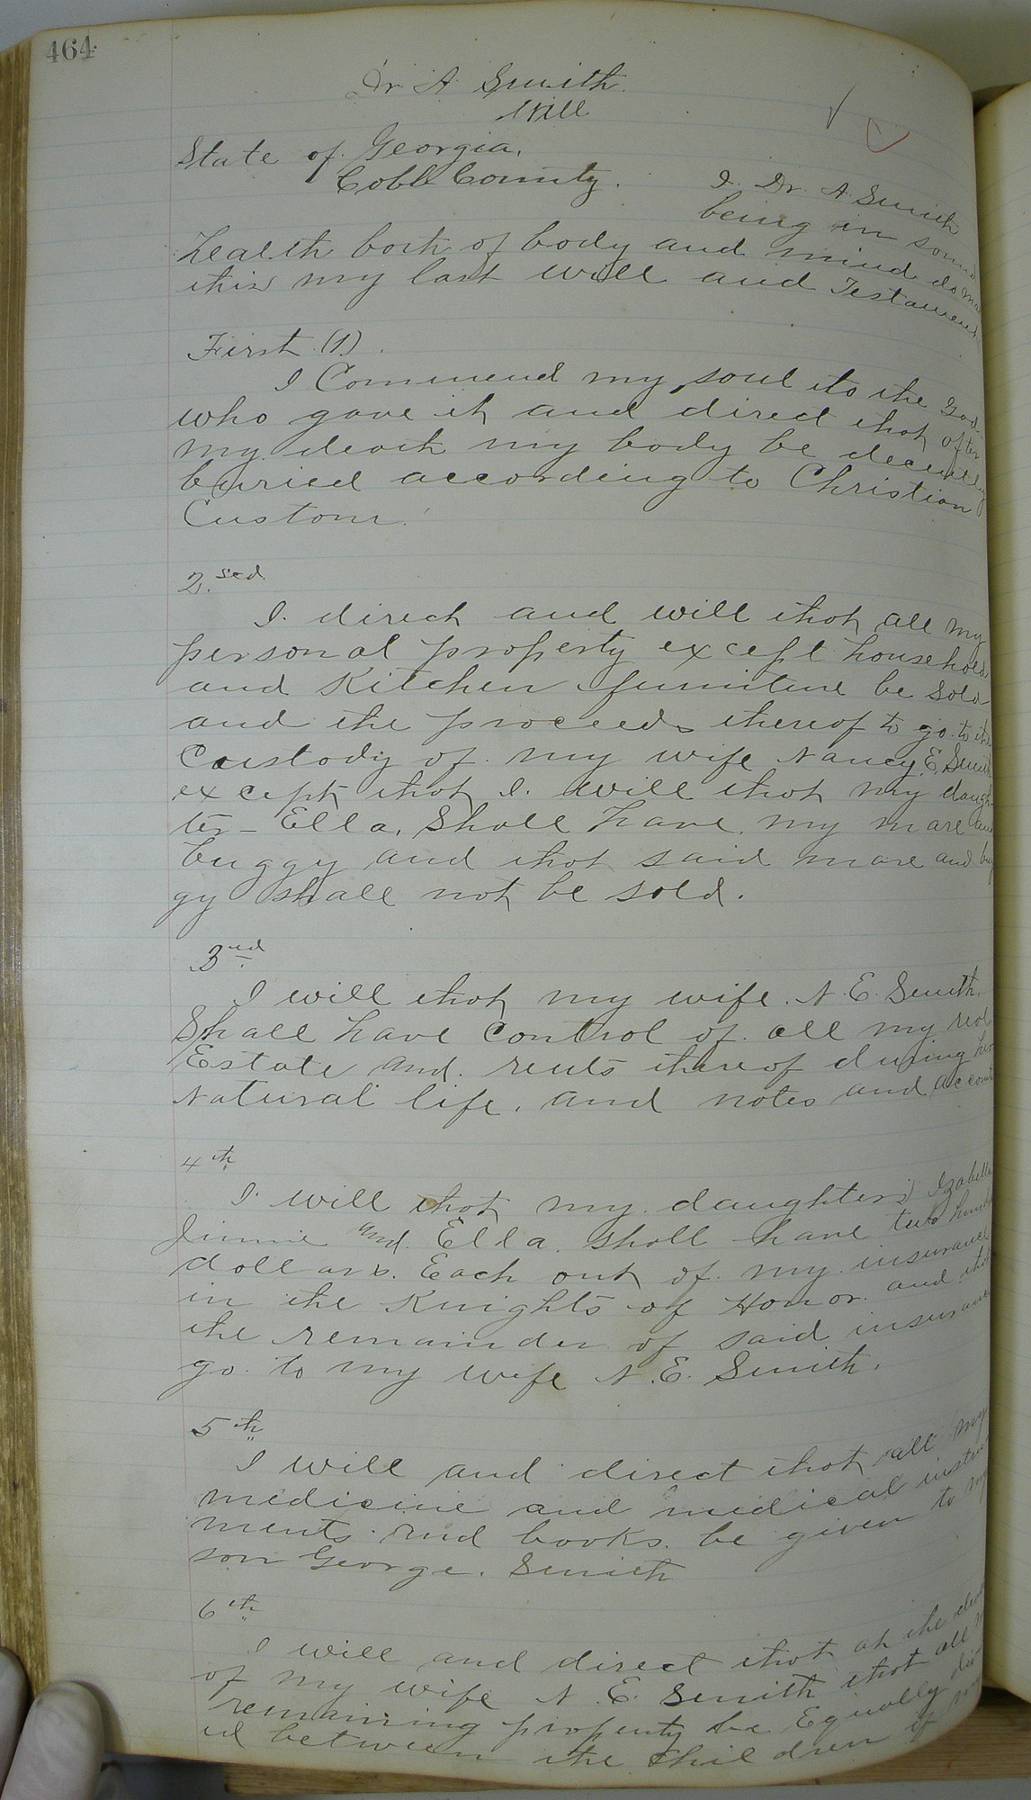 464
Dr A Smith
Will
State of Georgia,
Cobb County.
I. Dr. A. Smith
being in sound
health both of body and mind do
this my last will and Testament
First (1).
I Commend my soul to the God
who gave it and direct that after
my death my body be decently
buried according to Christian
Custom.
2.scd
I. direct and will that all my
personal property except household
and Kitchen furniture be sold
and the proceeds thereof to go to the
Custody of my wife Nancy. E. Smith
except that I. will that my daugh
ter - Ella. Shall have my mare and
buggy and that said mare and bug
gy shall not be sold.
3nd
I will that my wife. N. E. Smith.
Shall have control of all my real
Estate and. rents thereof during her
Natural life. and notes and accounts
4th
I. will that my daughters Izabella
Jimmie and. Ella. shall have two hundred
dollars. Each out of my insurance
in the Knights of Honor. and that
the remainder of said insurance
go to my wife N. E. Smith.
5th
I will and direct that all my
medicine and medical instru
ments and books. be given to my
son George. Smith
6th
I will and direct that at the death
of my wife N. E. Smith that all
remaining property be Equally divid
ed between the children of